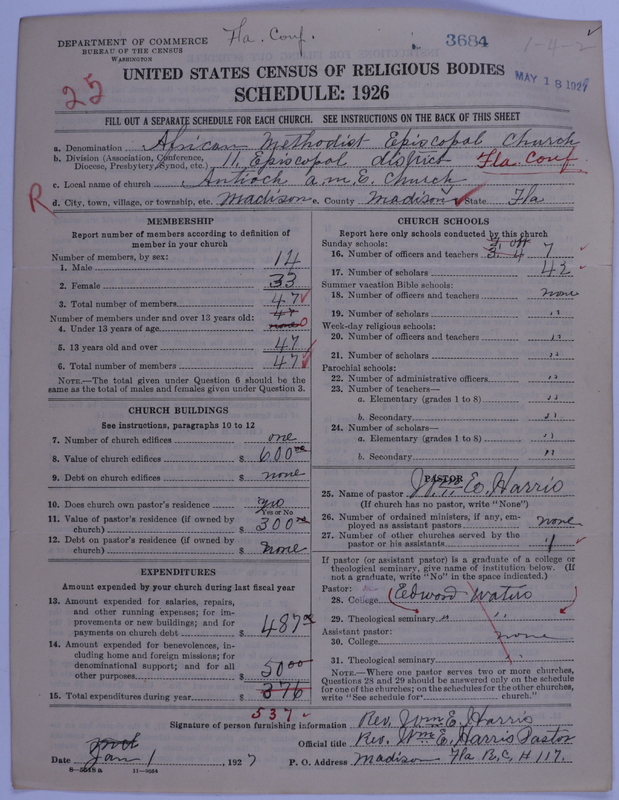 DEPARTMENT OF COMMERCE
BUREAU OF THE CENSUS
WASHINGTON
Fla. Conf.
3684
1-4-2
25
MAY 18 1927
UNITED STATES CENSUS OF RELIGIOUS BODIES
SCHEDULE: 1926
FILL OUT A SEPARATE SCHEDULE FOR EACH CHURCH. SEE INSTRUCTIONS ON THE BACK OF THIS SHEET
a. Denomination African Methodist Episcopal Church
b. Division (Association, Conference, Diocese, Presbytery, Synod, etc.) 11 Episcopal district Fla. Conf
c. Local name of church Antioch a.m.E. Church
R d. City, town, village, or township, etc. Madison e. County Madison State Fla
MEMBERSHIP
Report number of members according to definition of
member in your church
Number of members, by sex:
1. Male 14
2. Female 33
3. Total number of members 47
Number of members under and over 13 years old: 47
4. Under 13 years of age none 0
5. 13 years old and over 47
6. Total number of members 47
NOTE.—The total given under Question 6 should be the
same as the total of males and females given under Question 3.
CHURCH BUILDINGS
See instructions, paragraphs 10 to 12
7. Number of church edifices one
8. Value of church edifices $ 600 00
9. Debt on church edifices $ none
10. Does church own pastor's residence
Yes or No
11. Value of pastor's residence (if owned by
church) $ 300
12. Debt on pastor's residence (if owned by
church) $ none
EXPENDITURES
Amount expended by your church during last fiscal year
13. Amount expended for salaries, repairs,
and other running expenses; for im-
provements or new buildings; and for
payments on church debt $ 487
14. Amount expended for benevolences, in-
cluding home and foreign missions; for
denominational support; and for all
other purposes $ 50 00
15. Total expenditures during year $ 376
537
CHURCH SCHOOLS
Report here only schools conducted by this church
Sunday schools:
16. Number of officers and teachers 3. 4 7
17. Number of scholars 42
Summer vacation Bible schools:
18. Number of officers and teachers none
19. Number of scholars "
Week-day religious schools:
20. Number of officers and teachers "
21. Number of scholars "
Parochial schools:
22. Number of administrative officers "
23. Number of teachers—
a. Elementary (grades 1 to 8) "
b. Secondary "
24. Number of scholars—
a. Elementary (grades 1 to 8) "
b. Secondary "
PASTOR
25. Name of pastor Wm. E. Harris
(If church has no pastor, write "None")
26. Number of ordained ministers, if any, em-
ployed as assistant pastors none
27. Number of other churches served by the
pastor or his assistants 1
If pastor (or assistant pastor) is a graduate of a college or
theological seminary, give name of institution below. (If
not a graduate, write "No" in the space indicated.)
Pastor:
28. College Edword Waters
29. Theological seminary " "
Assistant pastor:
30. College none
31. Theological seminary
NOTE.—Where one pastor serves two or more churches,
Questions 28 and 29 should be answered only on the schedule
for one of the churches; on the schedules for the other churches,
write "See schedule for church."
Signature of person furnishing information Rev. Wm E. Harris
Official title Rev. Wm E. Harris Pastor
Date Jan 1, 1927 P. O. Address Madison Fla R, C, H 117.
8—5518 a 11—9684